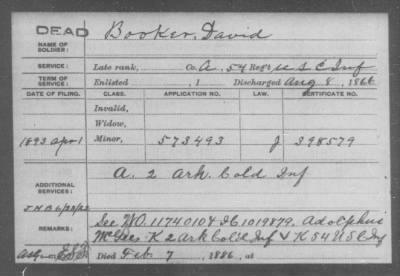 DEAD
NAME OF SOLDIER: Booker, David
SERVICE: Late rank, Co. A, 54 Reg't U S C Inf
TERM OF SERVICE: Enlisted , 1 Discharged Aug 8, 1866
DATE OF FILING. CLASS. APPLICATION NO. LAW. CERTIFICATE NO.
Invalid,
Widow,
1893 Apr 1 Minor, 573493 J 398579
ADDITIONAL SERVICES: A. 2 Ark. Cold Inf
REMARKS: See WO. 1174010 & IC 1019879. Adolphus
McGee K 2 Ark Col'd Inf & K 54 US C Inf
Died Feb 7, 1886, at